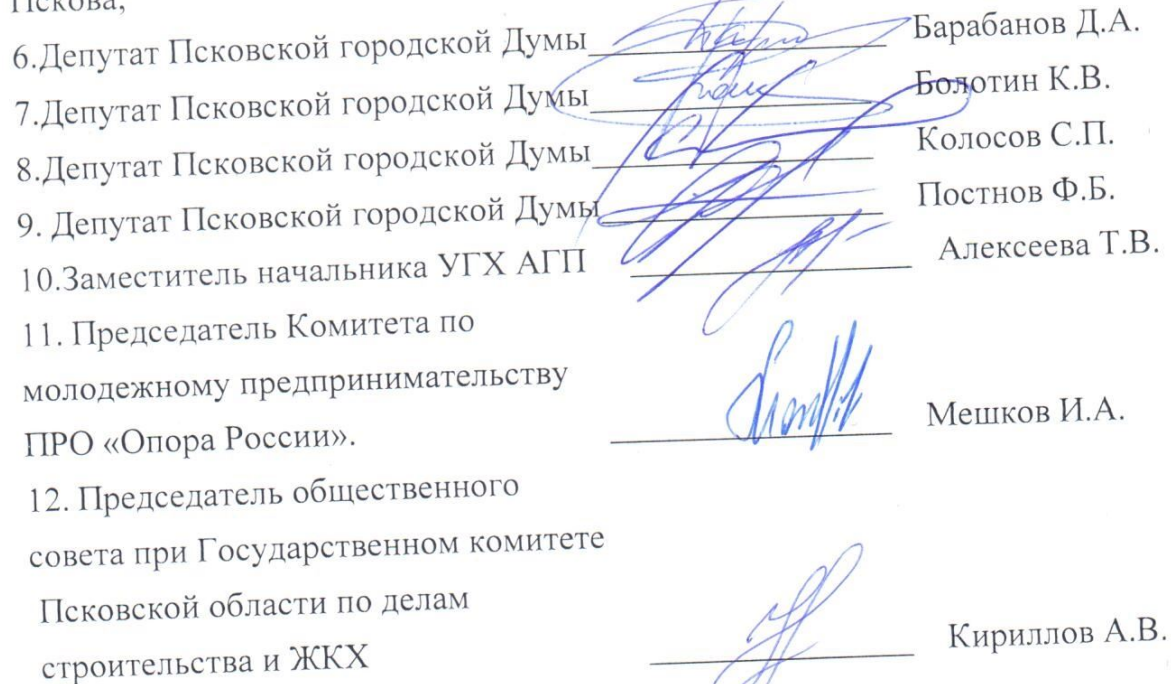 Пскова,
6.Депутат Псковской городской Думы Барабанов Д.А.
7.Депутат Псковской городской Думы Болотин К.В.
8.Депутат Псковской городской Думы Колосов С.П.
9. Депутат Псковской городской Думы Постнов Ф.Б.
10.Заместитель начальника УГХ АГП Алексеева Т.В.
11. Председатель Комитета по
молодежному предпринимательству
ПРО «Опора России». Мешков И.А.
12. Председатель общественного
совета при Государственном комитете
Псковской области по делам
строительства и ЖКХ Кириллов А.В.